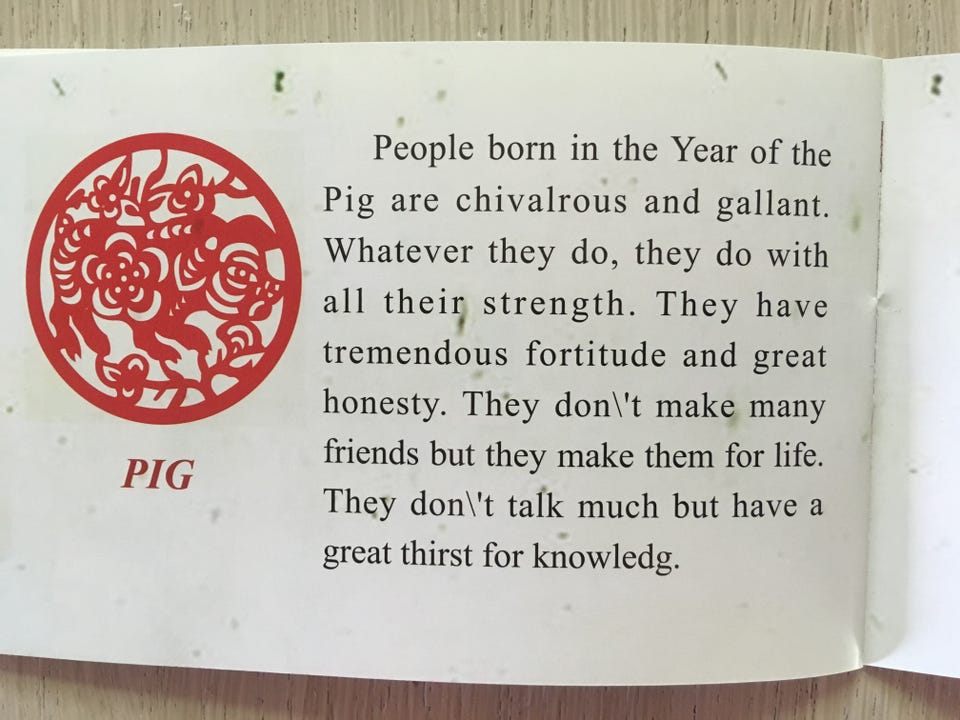 People born in the Year of the
Pig are chivalrous and gallant.
Whatever they do, they do with
all their strength. They have
tremendous fortitude and great
honesty. They don\'t make many
friends but they make them for life.
They don\'t talk much but have a
great thirst for knowledg.
PIG